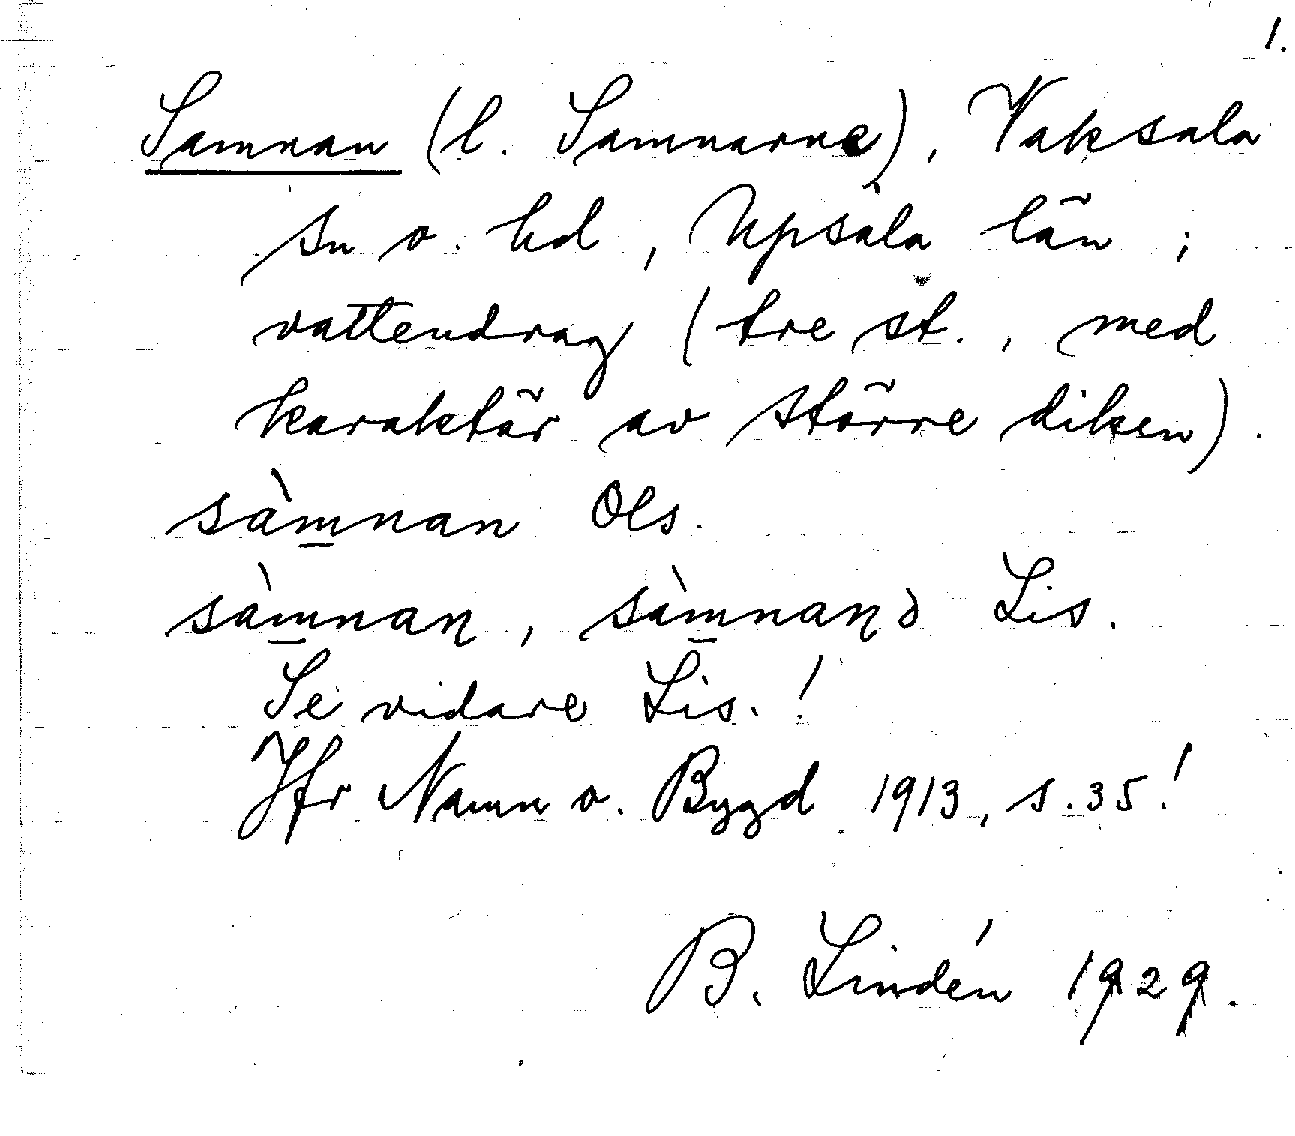 1.
Samnan (l. Samnarne), Vaksala
sn o. hd, Upsala län;
vattendrag (tre st., med
karaktär av större diken).
sàm̲nan Ols.
sàm̲nan̨, sàm̲nan̨ə Lis.
Se vidare Lis.!
Jfr Namn o. Bygd 1913, s. 35!
B. Lindén 1929.